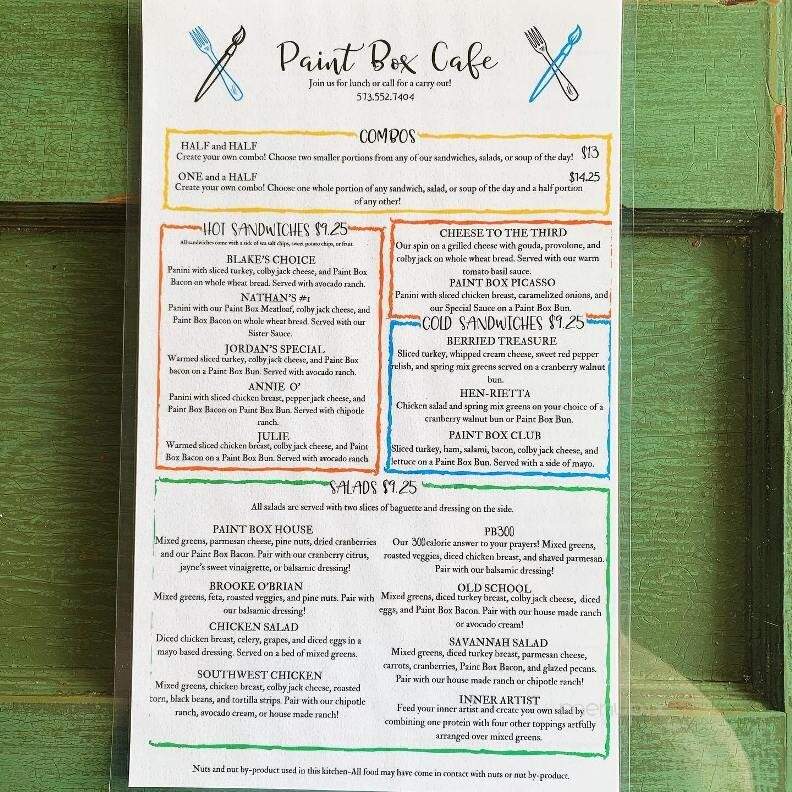 Paint Box Cafe
Join us for lunch or call for a carry out!
573.552.7404
COMBOS
HALF and HALF
$13
Create your own combo! Choose two smaller portions from any of our sandwiches, salads, or soup of the day!
ONE and a HALF
$14.25
Create your own combo! Choose one whole portion of any sandwich, salad, or soup of the day and a half portion
of any other!
HOT SANDWICHES $9.25
All sandwiches come with a side of sea salt chips, sweet potato chips, or fruit.
BLAKE'S CHOICE
Panini with sliced turkey, colby jack cheese, and Paint Box
Bacon on whole wheat bread. Served with avocado ranch.
NATHAN'S #1
Panini with our Paint Box Meatloaf, colby jack cheese, and
Paint Box Bacon on whole wheat bread. Served with our
Sister Sauce.
JORDAN'S SPECIAL
Warmed sliced turkey, colby jack cheese, and Paint Box
bacon on a Paint Box Bun. Served with avocado ranch.
ANNIE O'
Panini with sliced chicken breast, pepper jack cheese, and
Paint Box Bacon on Paint Box Bun. Served with chipotle
ranch.
JULIE
Warmed sliced chicken breast, colby jack cheese, and Paint
Box Bacon on a Paint Box Bun. Served with avocado ranch
CHEESE TO THE THIRD
Our spin on a grilled cheese with gouda, provolone, and
colby jack on whole wheat bread. Served with our warm
tomato basil sauce.
PAINT BOX PICASSO
Panini with sliced chicken breast, caramelized onions, and
our Special Sauce on a Paint Box Bun.
COLD SANDWICHES $9.25
BERRIED TREASURE
Sliced turkey, whipped cream cheese, sweet red pepper
relish, and spring mix greens served on a cranberry walnut
bun.
HEN-RIETTA
Chicken salad and spring mix greens on your choice of a
cranberry walnut bun or Paint Box Bun.
PAINT BOX CLUB
Sliced turkey, ham, salami, bacon, colby jack cheese, and
lettuce on a Paint Box Bun. Served with a side of mayo.
SALADS $9.25
All salads are served with two slices of baguette and dressing on the side.
PAINT BOX HOUSE
Mixed greens, parmesan cheese, pine nuts, dried cranberries
and our Paint Box Bacon. Pair with our cranberry citrus,
jayne's sweet vinaigrette, or balsamic dressing!
BROOKE O'BRIAN
Mixed greens, feta, roasted veggies, and pine nuts. Pair with
our balsamic dressing!
CHICKEN SALAD
Diced chicken breast, celery, grapes, and diced eggs in a
mayo based dressing. Served on a bed of mixed greens.
SOUTHWEST CHICKEN
Mixed greens, chicken breast, colby jack cheese, roasted
corn, black beans, and tortilla strips. Pair with our chipotle
ranch, avocado cream, or house made ranch!
PB300
Our 300 calorie answer to your prayers! Mixed greens,
roasted veggies, diced chicken breast, and shaved parmesan.
Pair with our balsamic dressing!
OLD SCHOOL
Mixed greens, diced turkey breast, colby jack cheese, diced
eggs, and Paint Box Bacon. Pair with our house made ranch
or avocado cream!
SAVANNAH SALAD
Mixed greens, diced turkey breast, parmesan cheese,
carrots, cranberries, Paint Box Bacon, and glazed pecans.
Pair with our house made ranch or chipotle ranch!
INNER ARTIST
Feed your inner artist and create you own salad by
combining one protein with four other toppings artfully
arranged over mixed greens.
Nuts and nut by-product used in this kitchen-All food may have come in contact with nuts or nut by-product.